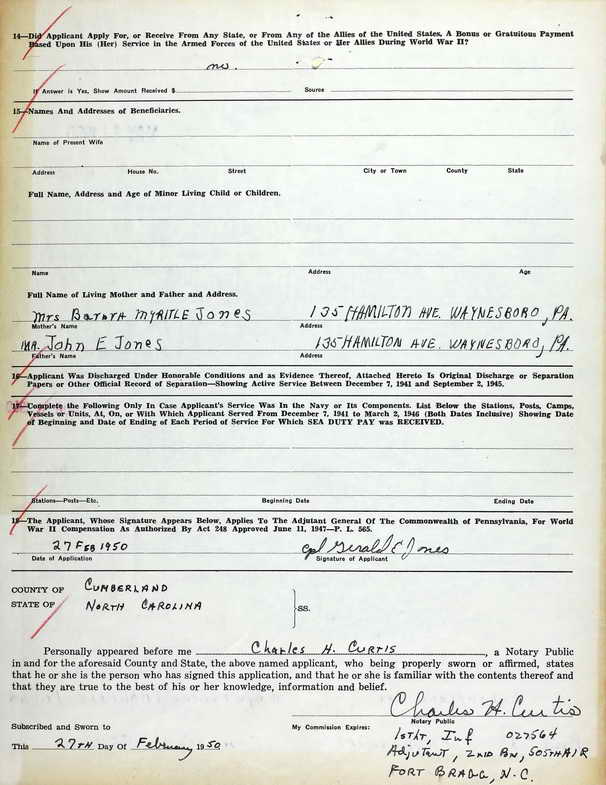 14—Did Applicant Apply For, or Receive From Any State, or From Any of the Allies of the United States, A Bonus or Gratuitous Payment
Based Upon His (Her) Service in the Armed Forces of the United States or Her Allies During World War II?
no.
If Answer is Yes, Show Amount Received $ Source
15—Names And Addresses of Beneficiaries.
Name of Present Wife
Address House No. Street City or Town County State
Full Name, Address and Age of Minor Living Child or Children.
Name Address Age
Full Name of Living Mother and Father and Address.
Mrs MYRITLE Jones 135 HAMILTON AVE. WAYNESBORO, PA.
Mother's Name Address
MR. John E Jones 135 HAMILTON AVE. WAYNESBORO, PA.
Father's Name Address
16—Applicant Was Discharged Under Honorable Conditions and as Evidence Thereof, Attached Hereto Is Original Discharge or Separation
Papers or Other Official Record of Separation—Showing Active Service Between December 7, 1941 and September 2, 1945.
17—Complete the Following Only In Case Applicant's Service Was In the Navy or Its Components. List Below the Stations, Posts, Camps,
Vessels or Units, At, On, or With Which Applicant Served From December 7, 1941 to March 2, 1946 (Both Dates Inclusive) Showing Date
of Beginning and Date of Ending of Each Period of Service For Which SEA DUTY PAY was RECEIVED.
Stations—Posts—Etc. Beginning Date Ending Date
18—The Applicant, Whose Signature Appears Below, Applies To The Adjutant General Of The Commonwealth of Pennsylvania, For World
War II Compensation As Authorized By Act 248 Approved June 11, 1947—P. L. 565.
27 FEB 1950 Cpl Gerald E Jones
Date of Application Signature of Applicant
COUNTY OF CUMBERLAND
STATE OF NORTH CAROLINA
SS.
Personally appeared before me Charles H. CURTIS, a Notary Public
in and for the aforesaid County and State, the above named applicant, who being properly sworn or affirmed, states
that he or she is the person who has signed this application, and that he or she is familiar with the contents thereof and
that they are true to the best of his or her knowledge, information and belief.
Charles H. Curtis
Notary Public
Subscribed and Sworn to My Commission Expires:
1st Lt, Inf 027564
This 27TH Day Of February 1950
Adjutant, 2ND BN, 505TH AIR
FORT BRAGG, N.C.